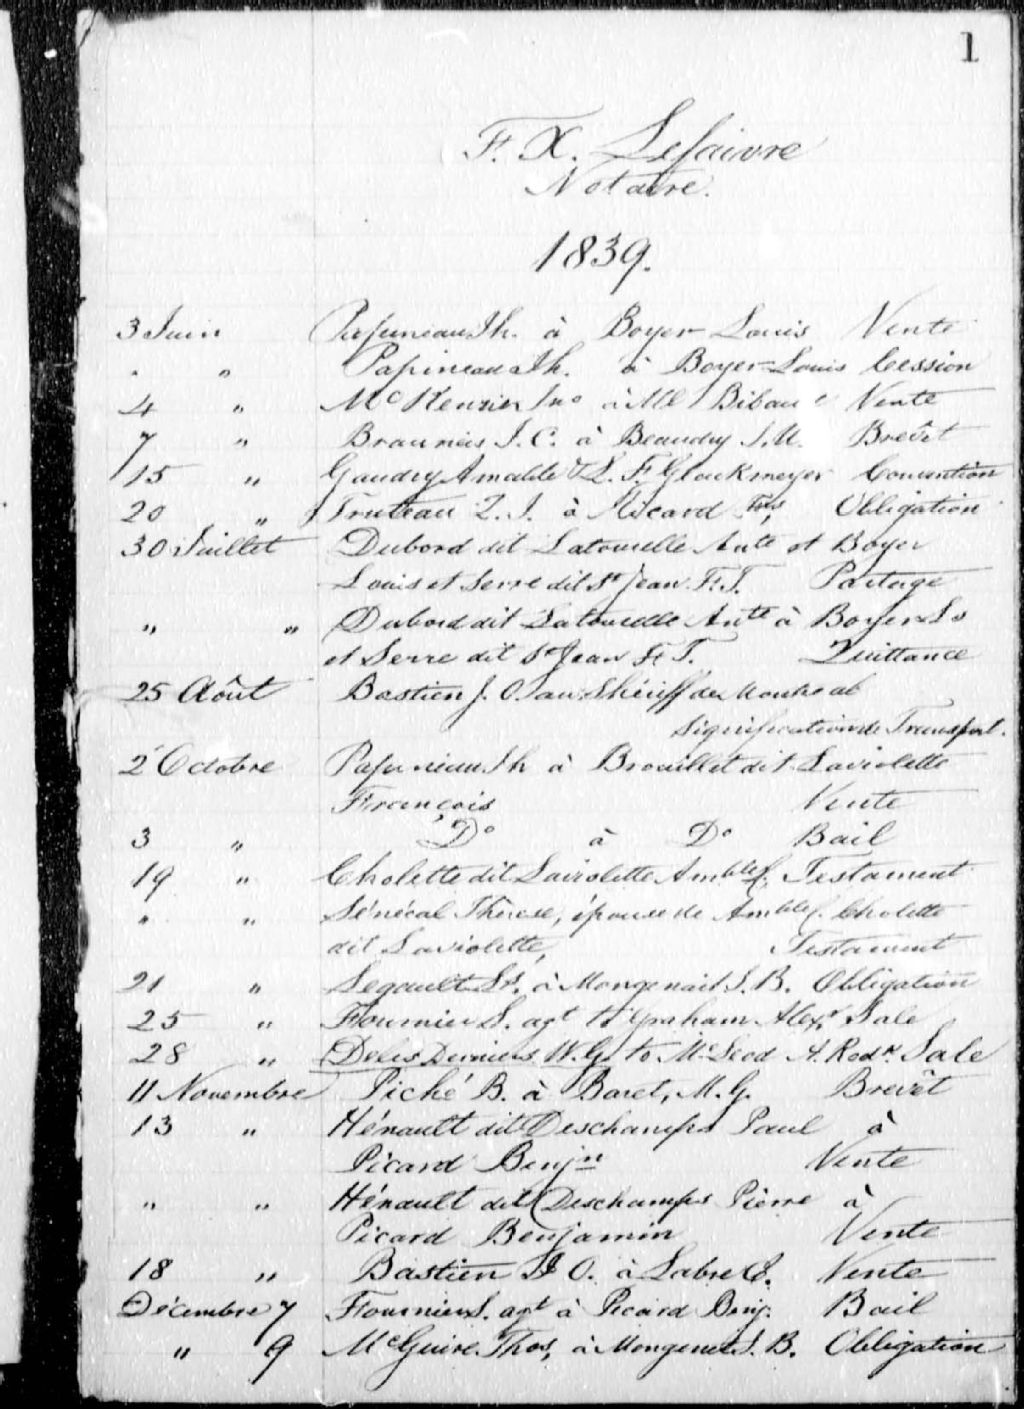 1
F. X. Lefaivre
Notaire.
1839.
3 Juin Papineau Th. à Boyer Louis Vente
" " Papineau Th. à Boyer Louis Cession
4 " McKenzie Jno à Bibau Vente
7 " Brauneis J. C. à Beaudry J. U. Brevêt
15 " Gaudry Amable & L. F. Glackmeyer Convention
20 " Truteau Z. J. à Ricard Frs, Obligation
30 Juillet Dubord dit Latourelle Ante et Boyer
Louis et Serre dit St Jean F. T. Partage
" " Dubord dit Latourelle Ante à Boyer Ls
et Serre dit St Jean F. T. Quittance
25 Août Bastien J. O. au Shériff de Montreal
Signification de Transport.
2 Octobre Papineau Th à Brouillet dit Laviolette
François Vente
3 " Do à Do Bail
19 " Cholette dit Laviolette Amble f. Testament
" " Sénécal Thérèse, épouse de Amble f. Cholette
dit Laviolette, Testament
21 " Legault Ls. à Mongenait J. B. Obligation
25 " Fournier S. agt to Graham Alexr Sale
28 " Delesderniers W. G. to McLeod A. Rodk Sale
11 Novembre Piché B. à Baret, M. G. Brevêt
13 " Hénault dit Deschamps Paul à
Picard Benjn Vente
" " Hénault dit Deschamps Pierre à
Picard Benjamin Vente
18 " Bastien J O. à Labre Vente
Décembre 7 Fournier S. agt à Picard Benj. Bail
" 9 McGuire Thos, à Mongenet J. B. Obligation